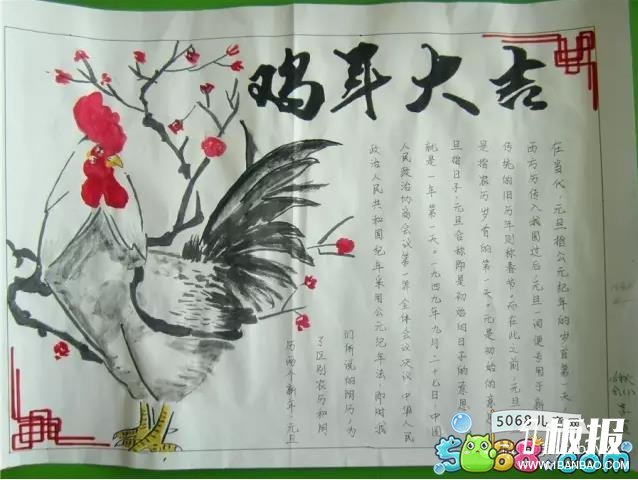 鸡年大吉
在当代,元旦指公元纪年的岁首第一天
西方历传入我国过后,元旦一词便专用于新
传统的旧历年则称春节。而在此之前,元旦
是指农历岁首的第一天。元是初始的意
旦指日子,元旦合称即是初始的日子的意思
就是一年第一天。一九四九年九月二十七日,中国
人民政治协商会议第一界全体会议决议"中华人民
政治人民共和国纪年采用公元纪年法,即时我
们所说的阴历,为
了区别农历和阴
历两个新年,元旦
5068儿童网
板报
5068.com
WWW.1BANBAO.COM